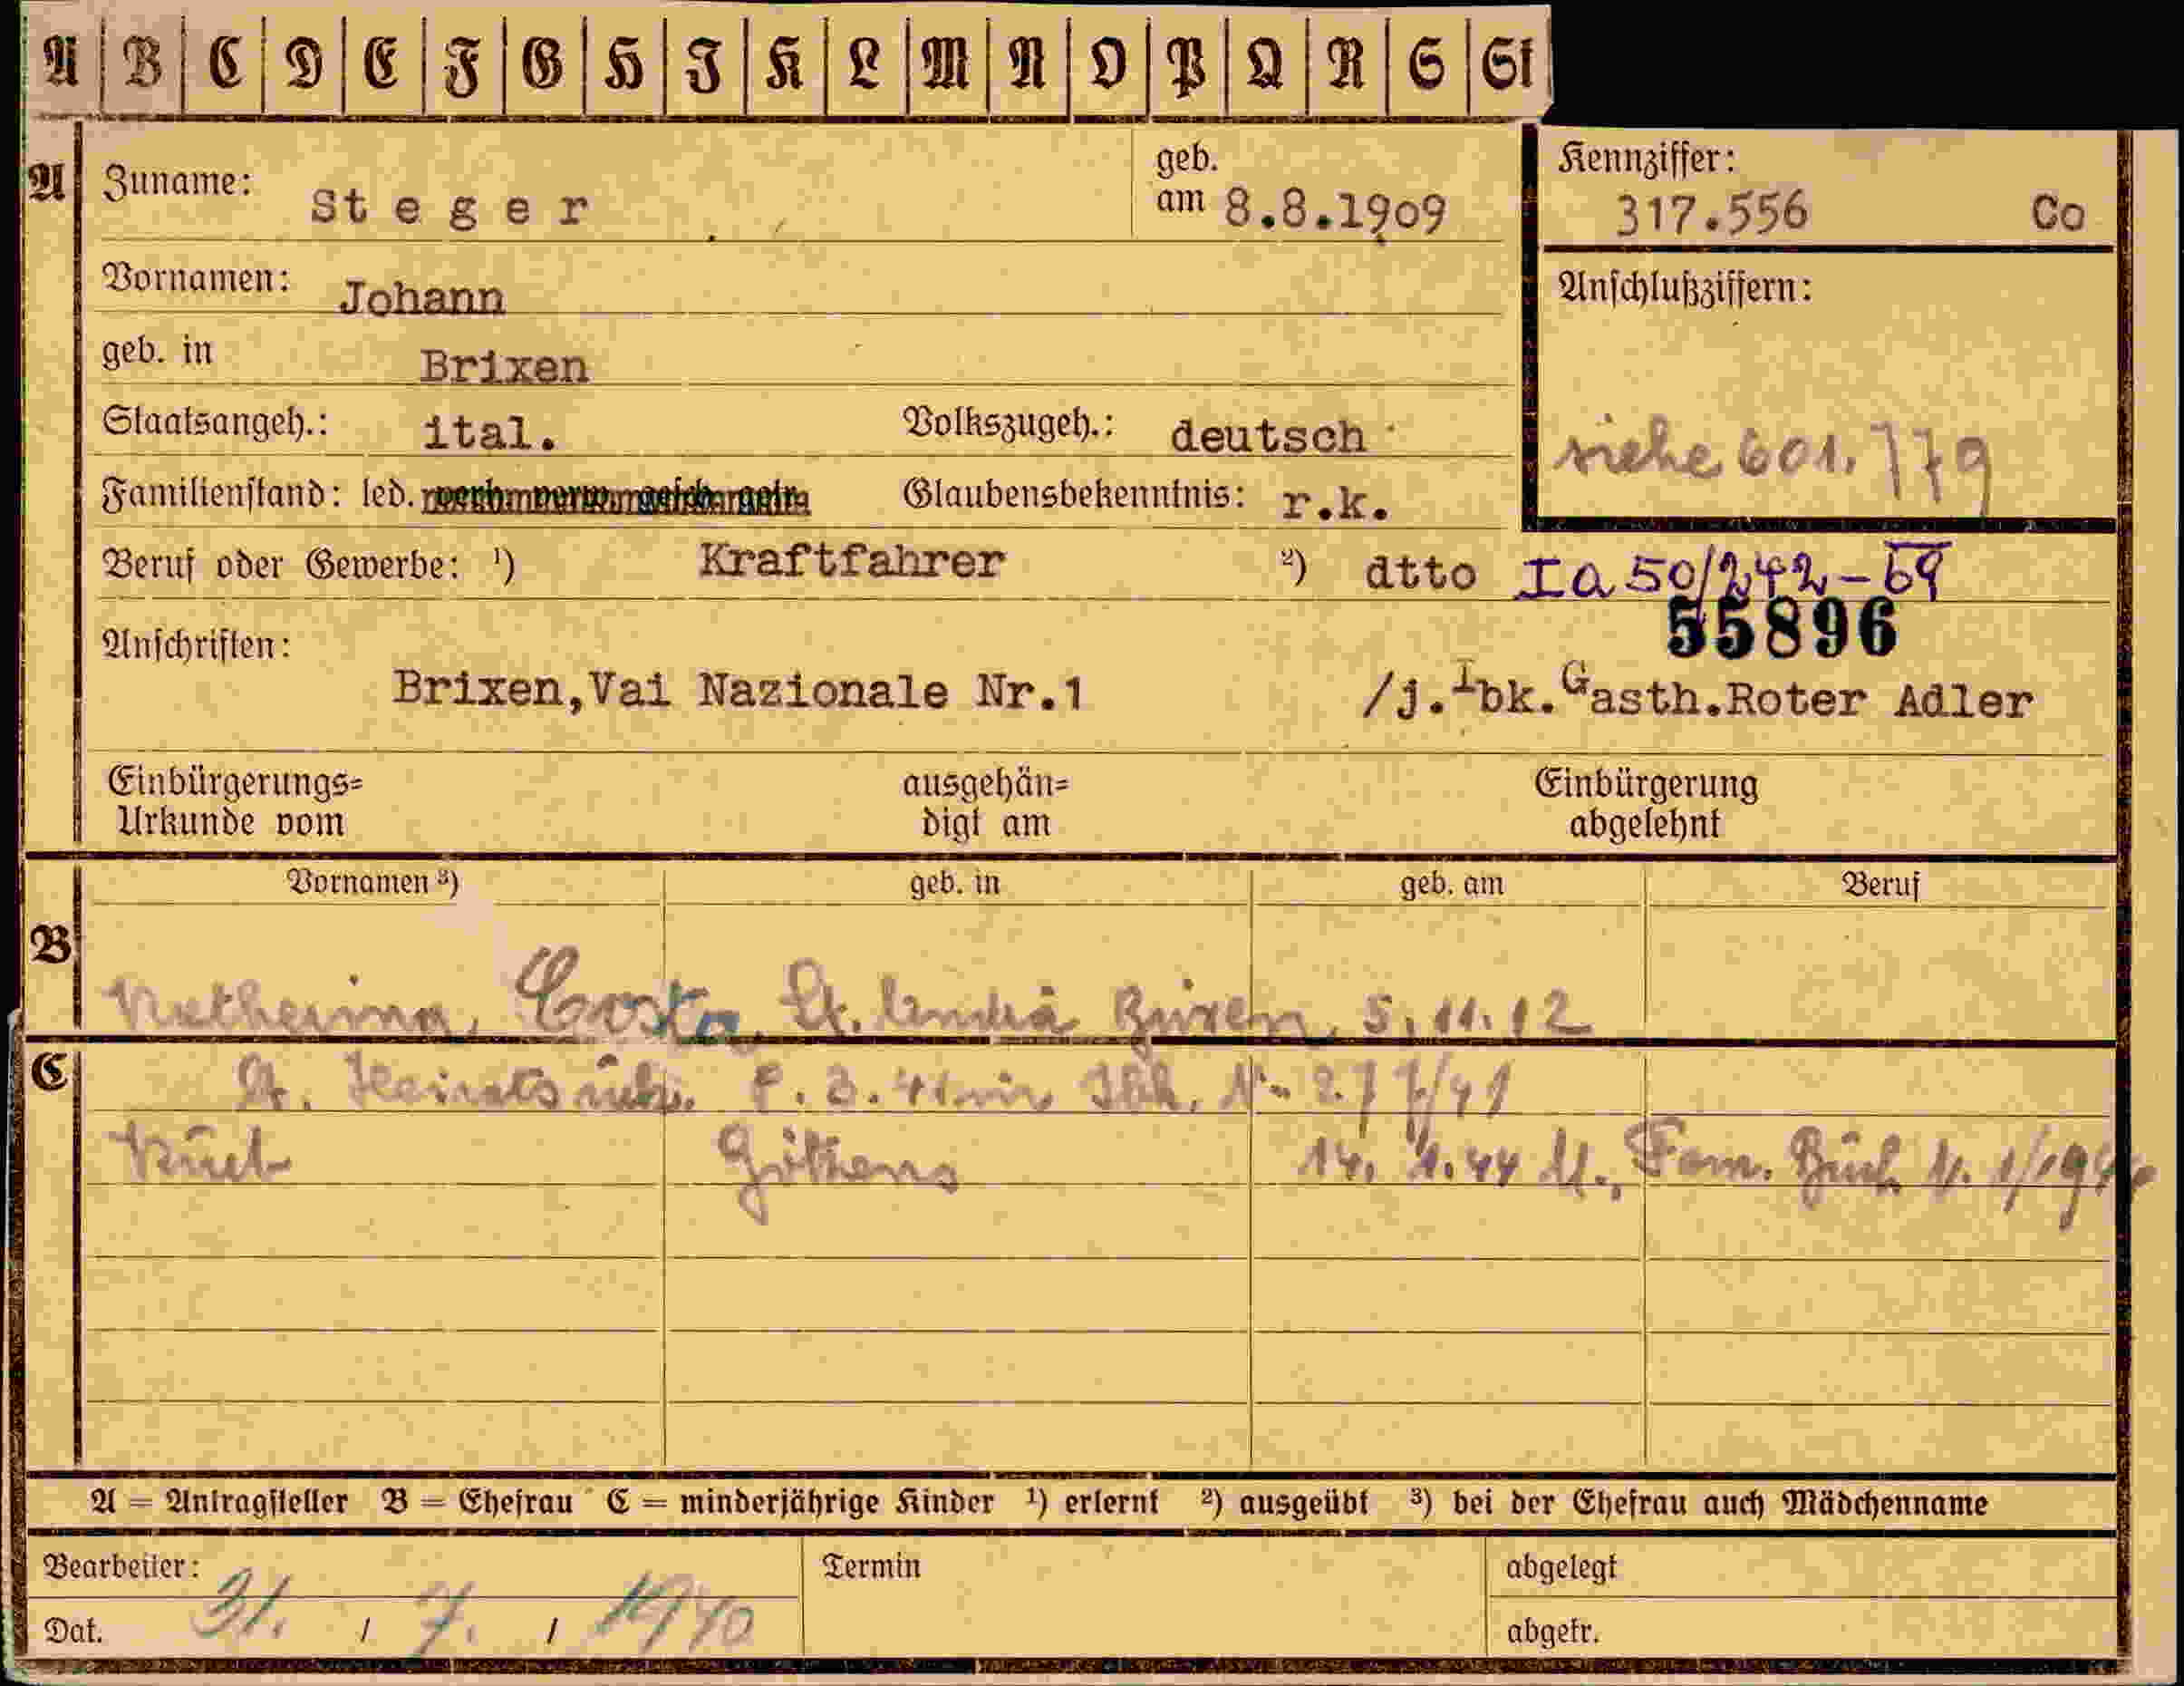 A B C D E F G H I K L M N O P Q R S St
A Zuname: St e g e r geb. am 8.8.1909
Kennziffer: 317.556 Co
Vornamen: Johann
Anschlußziffern:
geb. in Brixen
Staatsangeh.: ital. Volkszugeh.: deutsch
siehe 601.779
Familienstand: led. Glaubensbekenntnis: r.k.
Beruf oder Gewerbe: ¹) Kraftfahrer ²) dtto Ia 50/242-69
55896
Anschriften:
Brixen,Vai Nazionale Nr.1 /j.Ibk.Gasth.Roter Adler
Einbürgerungs= ausgehän= Einbürgerung
Urkunde vom digt am abgelehnt
Vornamen ³) geb. in geb. am Beruf
B
Katharina, Costa, St. Andrä Brixen, 5.11.12
C
Heirats 41 Ibk. 277/41
Götzens 14. 1.44 Fam. Buch 1/194
A = Antragsteller B = Ehefrau C = minderjährige Kinder ¹) erlernt ²) ausgeübt ³) bei der Ehefrau auch Mädchenname
Bearbeiter: Termin abgelegt
Dat. 31. / 7. / 1940 abgetr.